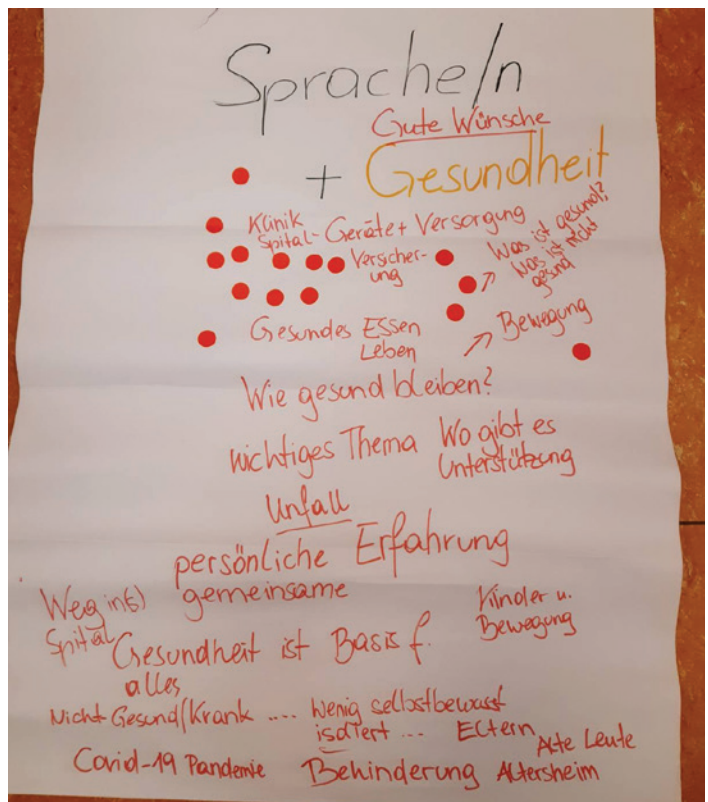 Sprache/n
Gute Wünsche
+ Gesundheit
Klinik
Spital-Geräte+ Versorgung
Versicher-
ung
Was ist gesund?
Was ist nicht
gesund
Gesundes Essen
Leben
Bewegung
Wie gesund bleiben?
wichtiges Thema
Wo gibt es
Unterstützung
Unfall
persönliche Erfahrung
gemeinsame
Weg in(s)
Spital
Kinder u.
Bewegung
Gesundheit ist Basis f.
alles
Nicht Gesund/Krank .... wenig selbstbewusst
isoliert ... Eltern
Alte Leute
Covid-19 Pandemie Behinderung Altersheim